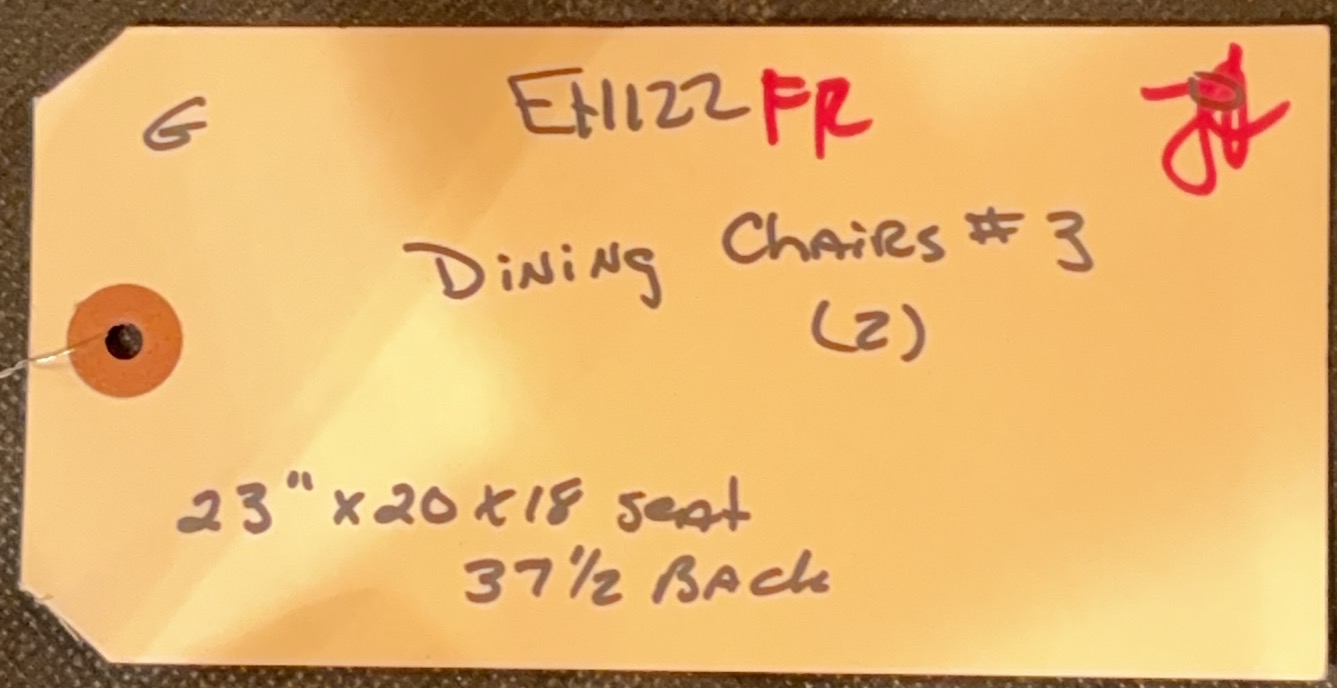 G EH1122 FR
Dining Chairs # 3
(2)
23" x 20 x 18 seat
37 1/2 Back